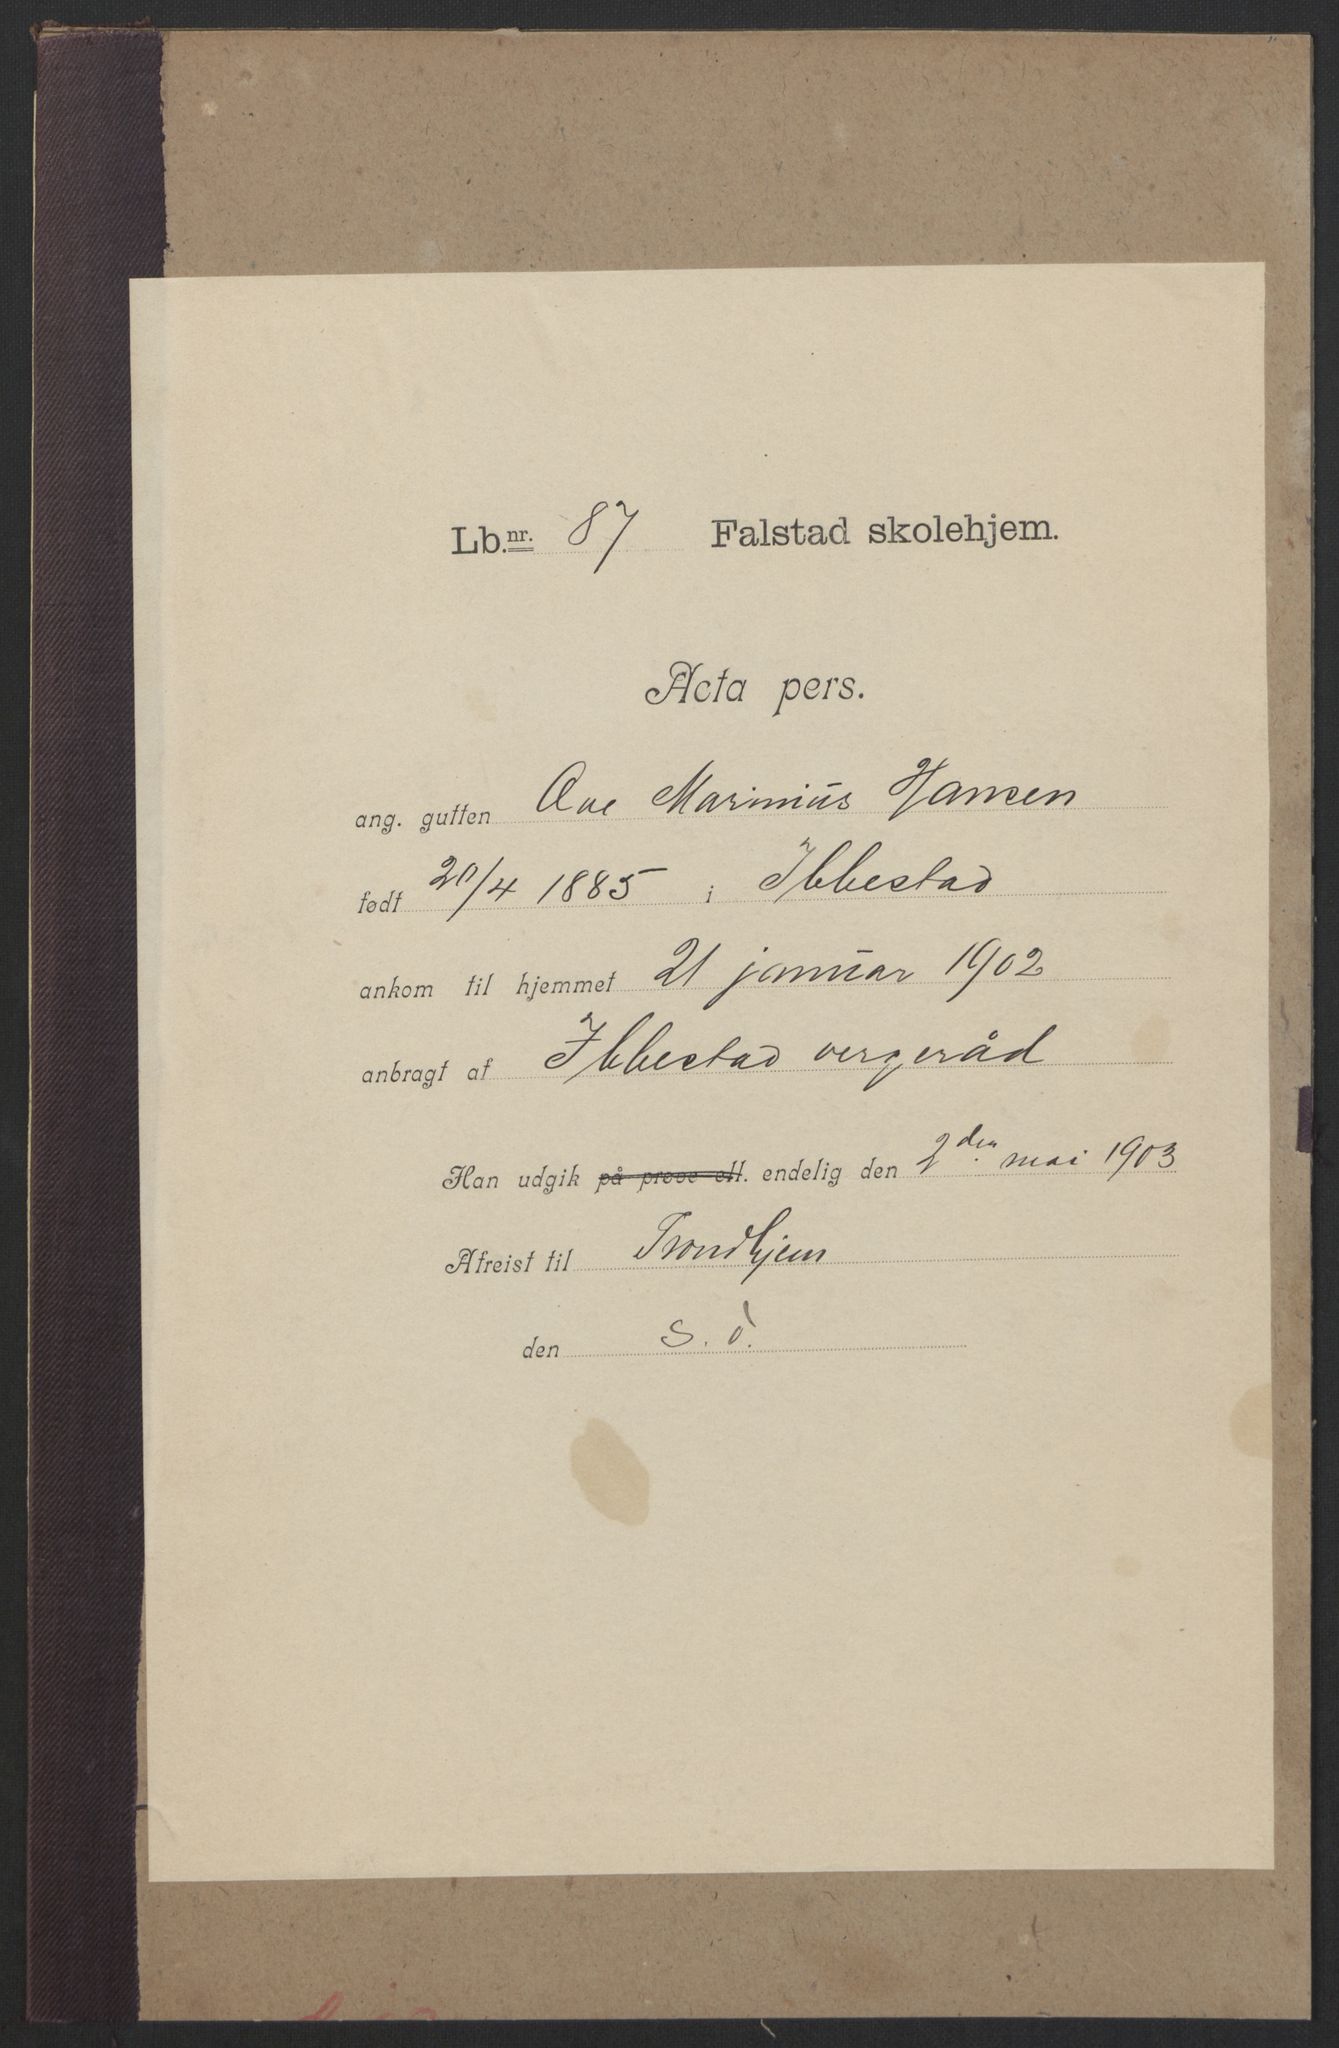 Lb.nr. 87 Falstad skolehjem.
Acta pers.
ang. gutten Ove Marinius Hansen
født 20/4 1885 i Ibbestad
ankom til hjemmet 21 januar 1902
anbragt af Ibbestad vergeråd
Han udgik på prøve ell. endelig den 2den mai 1903
Afreist til Trondhjem
den s. d.